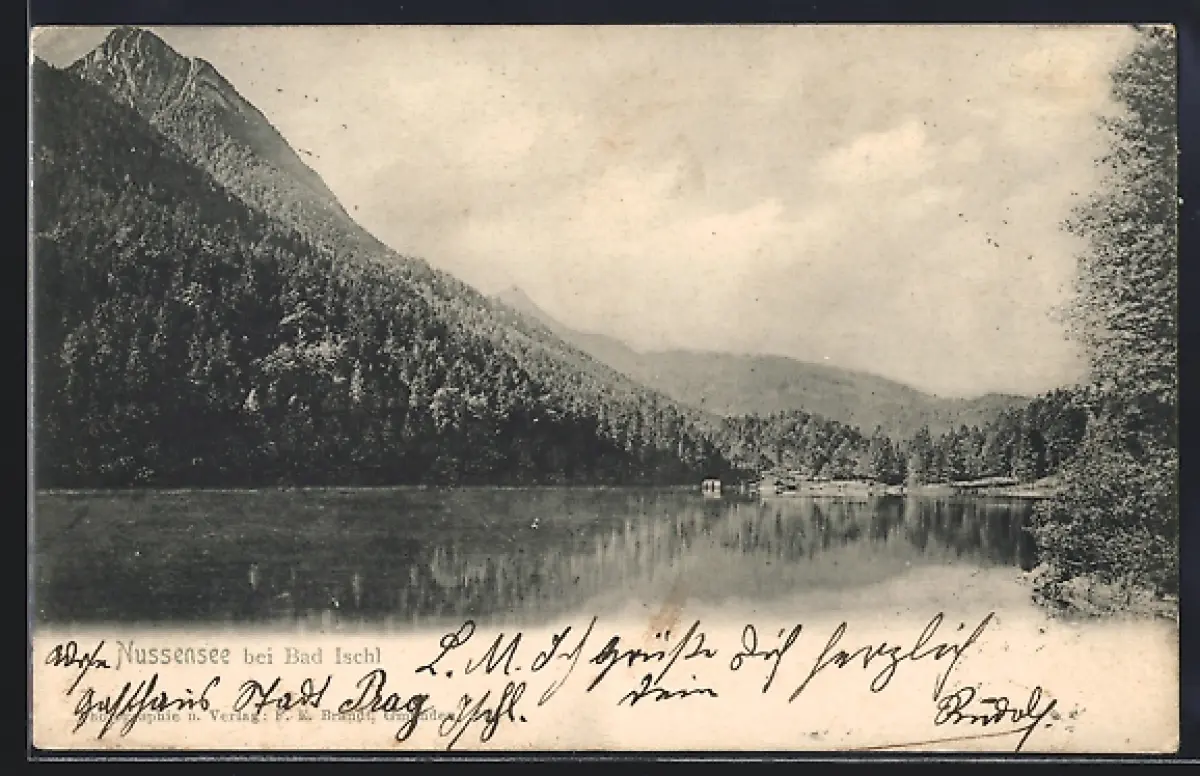 Nussensee bei Bad Ischl
Photographie u. Verlag: F. E. Brandt, Gmunden
L. M. Ich grüße Dich herzlich
Dein
Rudolf.
Gasthaus Stadt Prag Ischl.